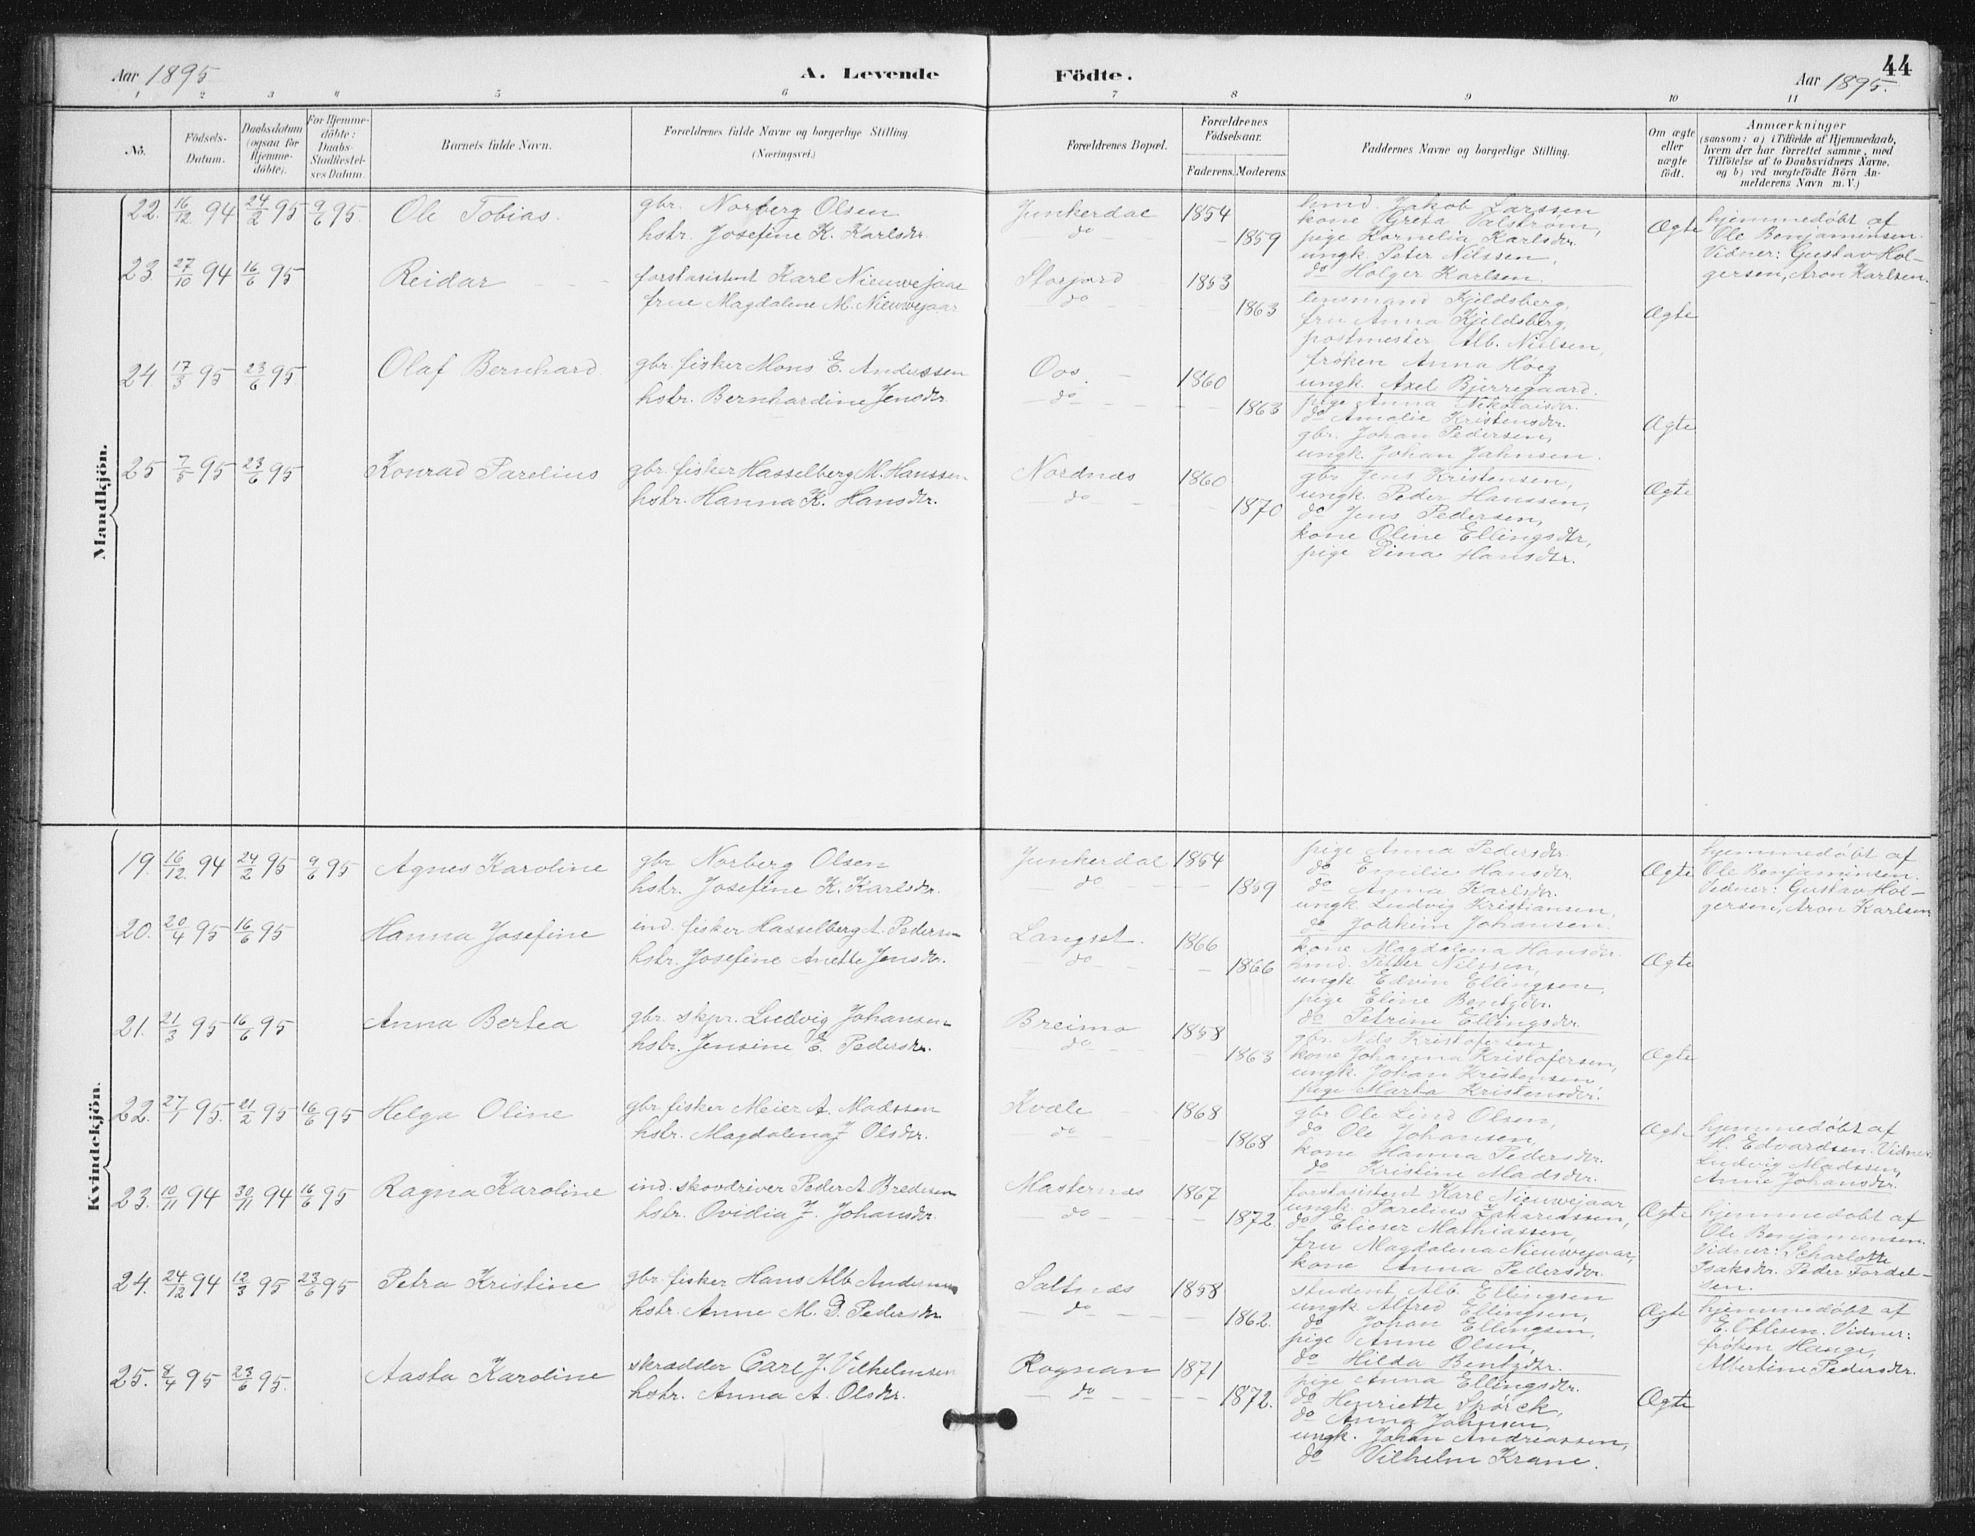 Aar 1895
A. Levende
Födte.
Aar 1895.
44
1 2 3 4 5 6 7 8 9 10 11
No.
Födsels-
Datum.
Daabsdatum
(ogsaa for
Hjemme-
døbte).
For Hjemme-
döbte:
Daabs-
Stadfæstel-
ses Datum.
Barnets fulde Navn.
Forældrenes fulde Navne og borgerlige Stilling
(Næringsvei.)
Forældrenes Bopæl.
Forældrenes
Födselsaar.
Faderens. Moderens.
Faddernes Navne og borgerlige Stilling.
Om ægte
eller
uægte
født.
Anmærkninger
(saasom: a) i Tilfælde af Hjemmedaab,
hvem der har forrettet samme, med
Tilföielse af to Daabsvidners Navne,
og b) ved uægtefödte Börn An-
melderens Navn m. V.)
Mandkjön.
22. 16/12 94 24/2 95 9/6 95. Ole Tobias.
gbr. Norberg Olsen
hstr. Josefine K. Karlsdtr.
Junkerdal 1854
do 1859
hmd. Jakob Larssen
kone Greta Valstrøm,
pige Kornelia Karlsdtr.
ungk. Peter Nilssen,
do Holger Karlsen.
Ægte
hjemmedøbt af
Ole Benjaminsen.
Vidner: Gustav Hol-
gersen, Aron Karlsen.
23 27/10 94 16/6 95 Reidar
forstasistent Karl Nieuwejaar
frue Magdalene M. Nieuwejaar
Storjord 1853
do 1863
lensmand Kjeldsberg,
fru Anna Kjeldsberg,
postmester Alb. Nielsen,
frøken Anna Høeg
ungk. Axel Bjerregaard.
Ægte
24 17/3 95 23/6 95. Olaf Bernhard.
gbr. fisker Mons E. Anderssen
hstr. Bernhardine Jensdtr.
Oos. 1860
do 1863
pige Anna Nikolaisdtr.
do Amalie Kristensdtr.
gbr. Johan Pedersen,
ungk. Johan Jahnsen.
Ægte
25 7/5 95 23/6 95 Konrad Parelius
gbr. fisker Hasselberg M. Hanssen
hstr. Hanna K. Hansdtr.
Nordnæs 1860
do 1870
gbr Jens Kristensen,
ungk. Peder Hanssen,
do Jens Pedersen,
kone Oline Ellingsdtr,
pige Dina Hansdtr.
Ægte
Kvindekjön.
19. 16/12 94 24/2 95 9/6 95 Agnes Karoline
gbr Norberg Olsen
hstr. Josefine K. Karlsdtr.
Junkerdal 1854
do 1859
pige Anna Pedersdtr.
do Emilie Hansdtr.
do Anna Karlsdtr.
ungk Ludvig Kristiansen,
do Joakim Johansen.
Ægte
hjemmedøbt af
Ole Benjaminsen.
Vidner: Gustav Hol-
gersen, Aron Karlsen
20. 20/4 95 16/6 95 Hanna Josefine
ind. fisker Hasselberg A. Pedersen
hstr. Josefine Anette Jensdtr.
Langset. 1866
do 1866
kone Magdalena Hansdtr.
hmd. Peder Nilssen,
ungk Edvin Ellingsen,
pige Eline Bentzdtr.
do Petrine Ellingsdtr.
Ægte
21. 21/3 95 16/6 95 Anna Bertea
gbr. skpr. Ludvig Johansen
hstr. Jensine E. Pedersdtr.
Breimo 1858
do 1863
gbr. Nils Kristofersen
kone Johanna Kristofersen,
ungk. Johan Kristensen,
pige Marta Kristensdtr.
Ægte
22. 27/1 95. 21/2 95 16/6 95 Helga Oline
gbr. fisker Meier A. Madssen
hstr. Magdalena J Olsdtr.
Kvæle 1868
do 1868
gbr Ole Lind Olsen,
do Ole Johansen,
kone Hanna Pedersdtr.
do Kristine Madsdtr.
Ægte
hjemmedøbt af
H. Edvardsen. Vidner:
Ludvig Madssen,
Anne Johansdtr.
23. 10/11 94 30/11 94 16/6 95 Ragna Karoline
ind. skovdriver Peder A Bredesen
hstr. Ovidia J. Johansdtr.
Masternæs 1867
do 1872.
forstasistent Karl Nieuwejaar
ungk. Parelius Zakariassen,
do Elieser Mathiassen,
fru Magdalena Nieuwejaar,
kone Anna Pedersdtr.
Ægte
hjemmedøbt af
Ole Benjaminsen.
Vidner: Scharlotte
Isaksdtr. Peder Fordel-
sen.
24. 24/12 94 12/3 95 23/6 95 Petra Kristine
gbr. fisker Hans Alb. Andersen
hstr. Anne M. D. Pedersdtr.
Saltnæs 1858
do 1862.
student Alb. Ellingsen
ungk Alfred Ellingsen,
do Johan Ellingsen,
pige Anne Olsen,
do Hilda Bentzdtr.
Ægte
hjemmedøbt af
E. Ottesen. Vidner:
frøken Hauge,
Albertine Pedersdtr.
25. 8/4 95 23/6 95. Aasta Karoline
skrædder Carl J. Vilhelmsen
hstr. Anna A. Olsdtr.
Rognan 1871
do 1872.
pige Anna Ellingsdtr.
do Henriette Spørck,
do Anna Johnsen,
ungk. Johan Andreassen,
do Vilhelm Krane.
Ægte